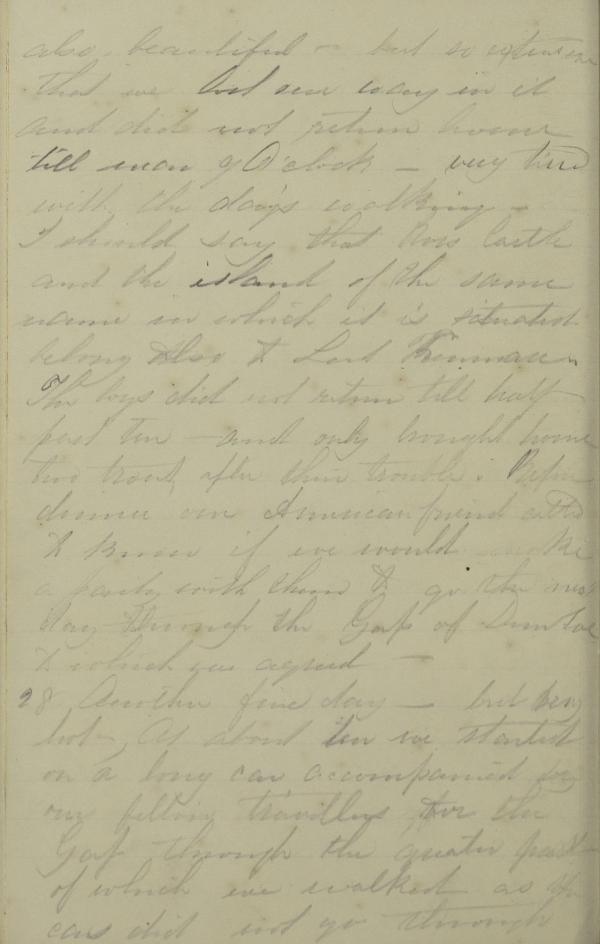 also beautiful – but so extensive
that we lost our way in it
and did not return home
till near 9 O'clock – very tired
with the day's walking –
I should say that Ross Castle
and the island of the same
name in which it is situated
belong also to Lord Kenmare.
The boys did not return till half
past ten – and only brought home
two trout after their trouble. Before
dinner our American friend called
to know if we would make
a party with them & go the next
day through the Gap of Dunloe
to which we agreed –
28 Another fine day – but very
hot. At about ten we started
on a long car accompanied by
our fellow travellers for the
Gap through the greater part
of which we walked as the
cars did not go through